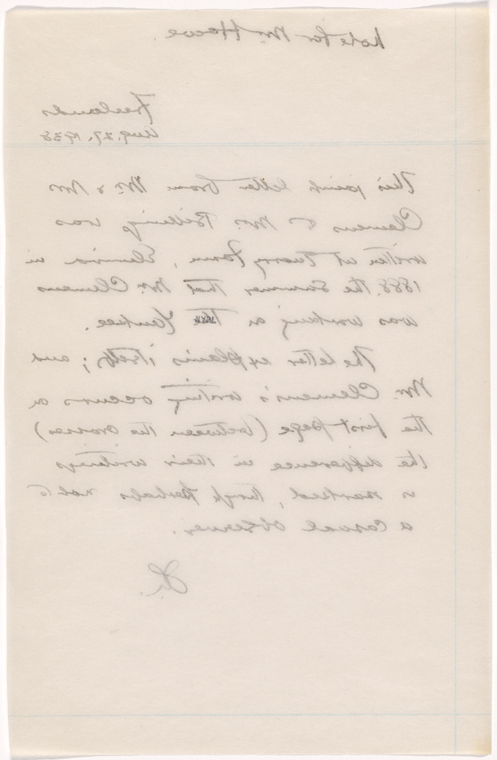 Note for Mr. Howe.
Freelands
Aug. 27. 1938
This joint letter from Mr. & Mrs
Clemens to Mrs. Billings was
written at Quarry Farm, Elmira in
1888, the summer that Mr. Clemens
was working on the Yankee.
The letter explains itself; and
Mr. Clemens's writing occurs on
the first page (between the crosses)
the difference in their writings
is marked, though perhaps not to
a casual observer.